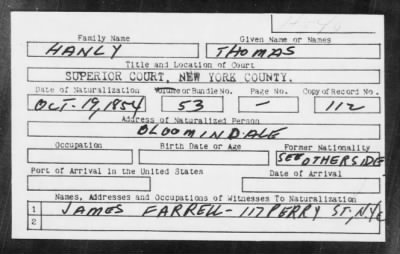 Family Name Given Name or Names
HANLY THOMAS
Title and Location of Court
SUPERIOR COURT, NEW YORK COUNTY.
Date of Naturalization Volume or Bundle No. Page No. Copy of Record No.
OCT. 19, 1854 53 - 112
Address of Naturalized Person
BLOOMINDALE
Occupation Birth Date or Age Former Nationality
SEE OTHERSIDE
Port of Arrival in the United States Date of Arrival
Names, Addresses and Occupations of Witnesses To Naturalization
1 JAMES FARRELL - 117 PERRY ST, NYC
2